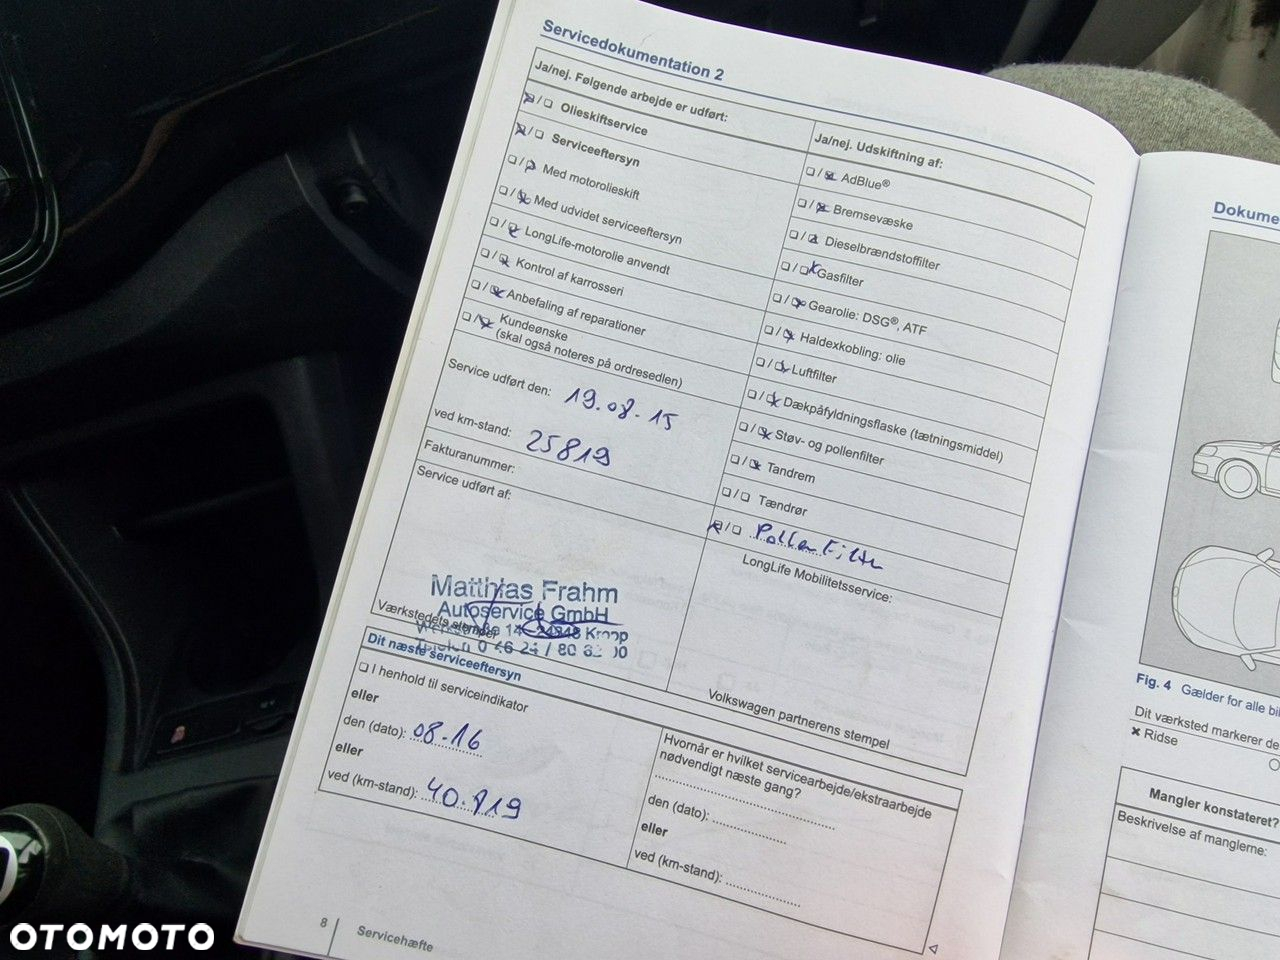 Servicedokumentation 2
Ja/nej. Følgende arbejde er udført:
Olieskiftservice
Serviceeftersyn
Med motorolieskift
Med udvidet serviceeftersyn
LongLife-motorolie anvendt
Kontrol af karrosseri
Anbefaling af reparationer
Kundeønske
(skal også noteres på ordresedlen)
Service udført den: 19.08.15
ved km-stand: 25819
Fakturanummer:
Service udført af:
Matthias Frahm
Autoservice GmbH
Værkstedets stempel
14 - 24848 Kropp
Telefon 0 46 24 / 80 82 00
Ja/nej. Udskiftning af:
AdBlue®
Bremsevæske
Dieselbrændstoffilter
Gasfilter
Gearolie: DSG®, ATF
Haldexkobling: olie
Luftfilter
Dækpåfyldningsflaske (tætningsmiddel)
Støv- og pollenfilter
Tandrem
Tændrør
Pollenfilter
LongLife Mobilitetsservice:
Volkswagen partnerens stempel
Dit næste serviceeftersyn
I henhold til serviceindikator
eller
den (dato): 08.16
eller
ved (km-stand): 40.819
Hvornår er hvilket servicearbejde/ekstraarbejde
nødvendigt næste gang?
den (dato):
eller
ved (km-stand):
8 Servicehæfte
Dokume
Fig. 4 Gælder for alle bil
Dit værksted markerer de
× Ridse
Mangler konstateret?
Beskrivelse af manglerne:
OTOMOTO